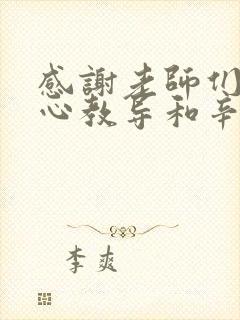 感謝老師们
心教导和辛
李爽